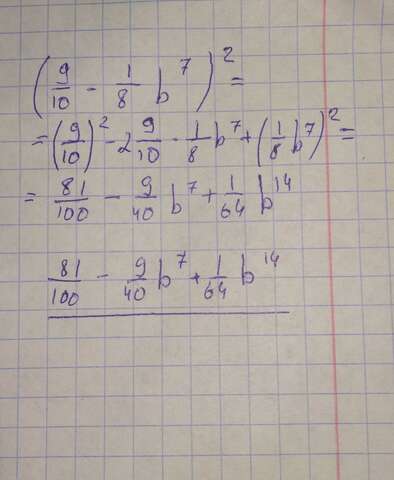 (9/10 - 1/8 b^7)^2 =
= (9/10)^2 - 2 9/10 - 1/8 b^7 + (1/8 b^7)^2 =
= 81/100 - 9/40 b^7 + 1/64 b^14
81/100 - 9/40 b^7 + 1/64 b^14